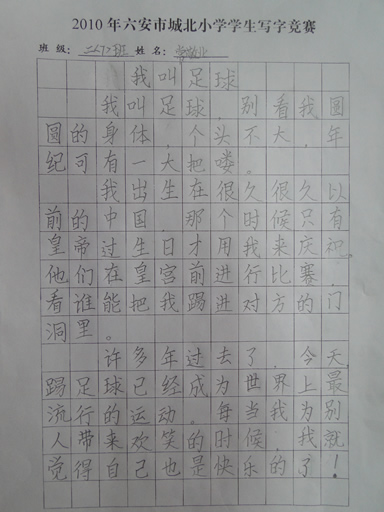 2010年六安市城北小学学生写字竞赛
班级: 二(7)班 姓名:
我叫足球
我叫足球，别看我圆
圆的身体，个头不大，年
纪可有一大把喽。
我出生在很久很久以
前的中国，那个时候只有
皇帝过生日才用我来庆祝，
他们在皇宫前进行比赛，
看谁能把我踢进对方的门
洞里。
许多年过去了，今天，
踢足球已经成为世界上最
流行的运动。每当我为别
人带来欢笑的时候，我就
觉得自己也是快乐的了！